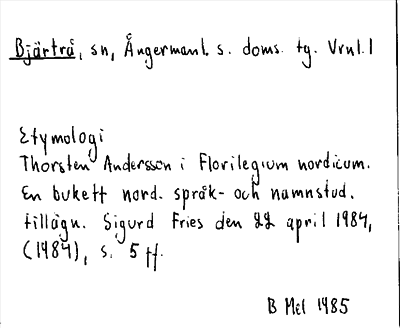 Bjärtrå, sn, Ångermanl. s. doms. tg. Vrnl. 1
Etymologi
Thorsten Andersson i Florilegium nordicum.
En bukett nord. språk- och namnstud.
tillägn. Sigurd Fries den 22 april 1984,
(1984), s. 5 ff.
B Mel 1985